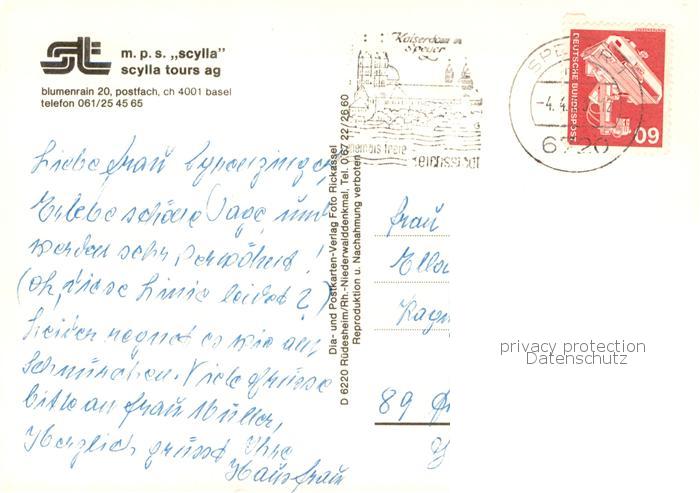 m. p. s. „scylla"
scylla tours ag
blumenrain 20, postfach, ch 4001 basel
telefon 061/25 45 65
Kaiserdom in
Speyer
ehemals freie
reichsstadt
SPEYER 1
-4.4.
6720
DEUTSCHE BUNDESPOST
60
Liebe Frau
Erlebe schöne Tage und
werden sehr verwöhnt!
(Oh, diese Linie leidet?)
Leider regnet es wie am
Schnürchen. Viele Grüsse
bitte an Frau Müller,
Herzlich grüsst Ihre
Hausfrau
Dia- und Postkarten-Verlag Foto Rickassel
D 6220 Rüdesheim/Rh.-Niederwalddenkmal, Tel. 0 67 22 / 26 60
Reproduktion u. Nachahmung verboten
Frau
Ella
89
privacy protection
Datenschutz